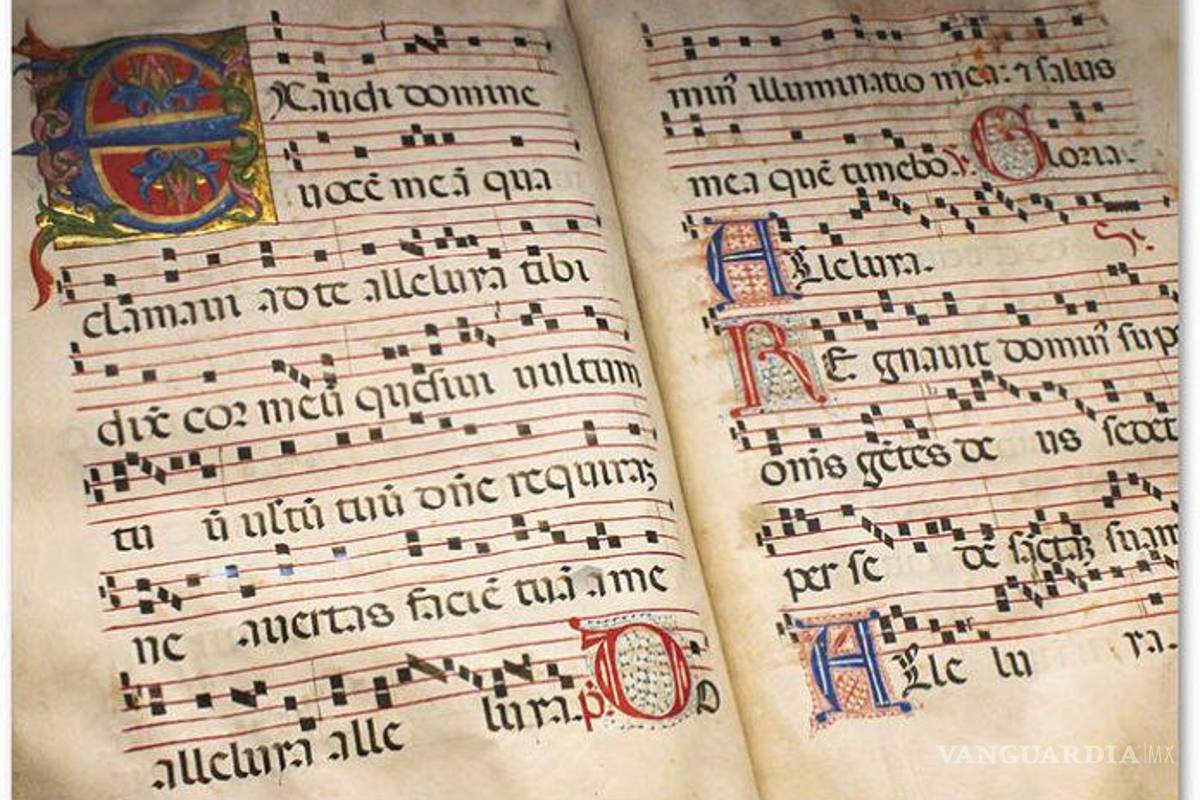 EXaudi domine
vocē meā qua
clamavi ad te alleluya tibi
dix̄ cor meū quesivi vultum
tu ū vultū tuū dn̄e requirā
ne avertas faciē tuā a me
alleluya alle luya. p̄. DO
min' illuminatio mea: ⁊ salus
mea quē timebo. Gloria.
ALleluya.
REgnavit domin' sup
om̄s gētes de us sedet
per se dē sāctā suam
ALle lu ya.
VANGUARDIA|MX